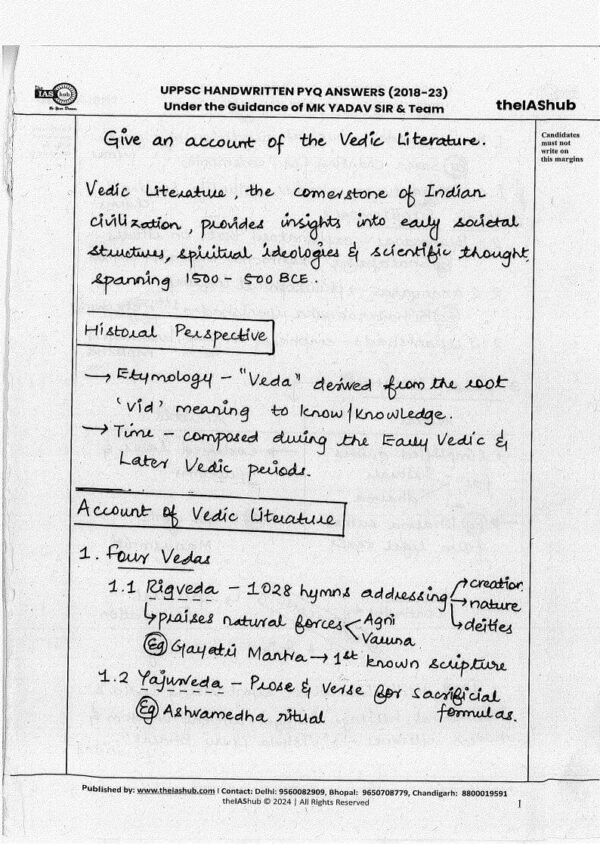 The
IAS hub
Be Your Donor
UPPSC HANDWRITTEN PYQ ANSWERS (2018-23)
Under the Guidance of MK YADAV SIR & Team
theIAShub
Candidates
must not
write on
this margins
Give an account of the Vedic Literature.
Vedic Literature, the cornerstone of Indian
civilization, provides insights into early societal
structures, spiritual ideologies & scientific thought,
spanning 1500 - 500 BCE.
Historal Perspective
→ Etymology - "Veda" derived from the root
'vid' meaning to know/knowledge.
→ Time - composed during the Early Vedic &
Later Vedic periods.
Account of Vedic Literature
1. Four Vedas
1.1 Rigveda - 1028 hymns addressing → creation
→ nature
→ deities
↳ praises natural forces < Agni
Varuna
Eg Gayatri Mantra → 1st known scripture
1.2 Yajurveda - Prose & verse for sacrificial
formulas.
Eg Ashwamedha ritual
Published by: www.theiashub.com | Contact: Delhi: 9560082909, Bhopal: 9650708779, Chandigarh: 8800019591
theIAShub © 2024 | All Rights Reserved
1